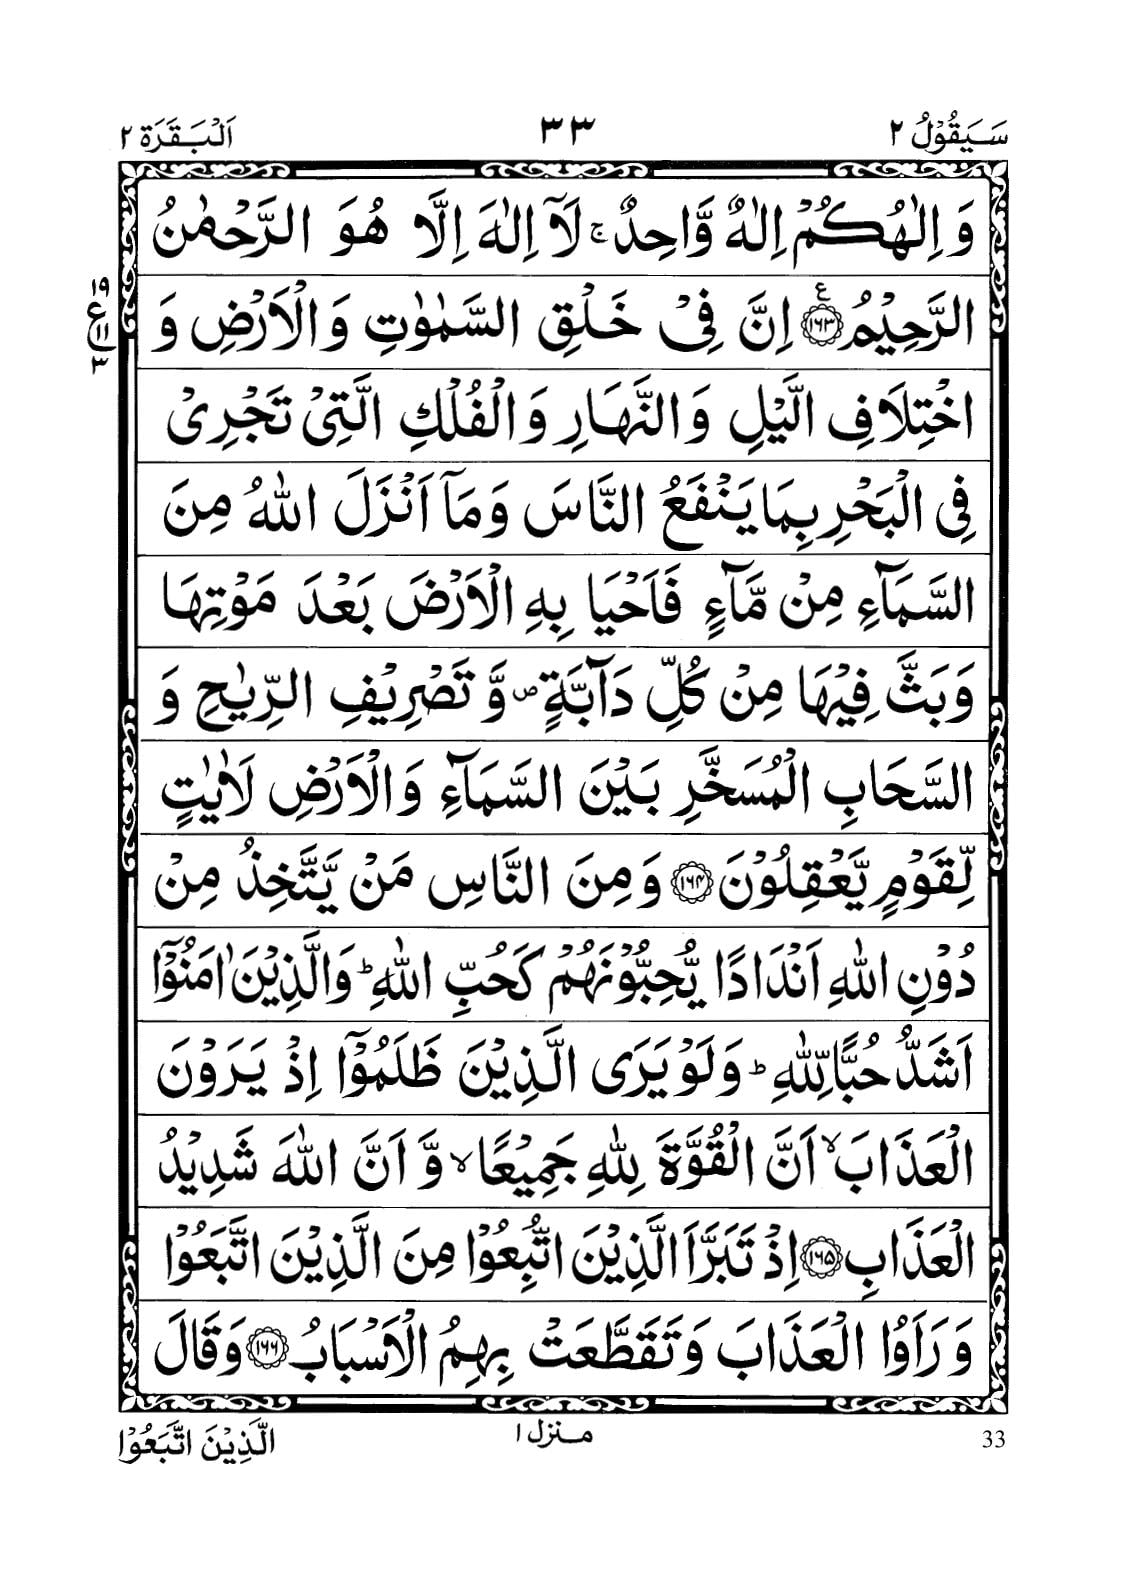 سَيَقُوْلُ ٢
٣٣
اَلْبَقَرَة ٢
وَ اِلٰهُكُمْ اِلٰهٌ وَّاحِدٌ ۚ لَاۤ اِلٰهَ اِلَّا هُوَ الرَّحْمٰنُ
الرَّحِيْمُ ﴿١٦٣﴾ ع اِنَّ فِیْ خَلْقِ السَّمٰوٰتِ وَ الْاَرْضِ وَ
١٩
ع
١١
٣
اخْتِلَافِ الَّيْلِ وَ النَّهَارِ وَ الْفُلْكِ الَّتِیْ تَجْرِیْ
فِی الْبَحْرِ بِمَا يَنْفَعُ النَّاسَ وَ مَاۤ اَنْزَلَ اللّٰهُ مِنَ
السَّمَآءِ مِنْ مَّآءٍ فَاَحْيَا بِهِ الْاَرْضَ بَعْدَ مَوْتِهَا
وَ بَثَّ فِيْهَا مِنْ كُلِّ دَآبَّةٍ ص وَّ تَصْرِيْفِ الرِّيٰحِ وَ
السَّحَابِ الْمُسَخَّرِ بَيْنَ السَّمَآءِ وَ الْاَرْضِ لَاٰيٰتٍ
لِّقَوْمٍ يَّعْقِلُوْنَ ﴿١٦٤﴾ وَ مِنَ النَّاسِ مَنْ يَّتَّخِذُ مِنْ
دُوْنِ اللّٰهِ اَنْدَادًا يُّحِبُّوْنَهُمْ كَحُبِّ اللّٰهِ ؕ وَ الَّذِيْنَ اٰمَنُوْۤا
اَشَدُّ حُبًّا لِّلّٰهِ ؕ وَ لَوْ يَرَی الَّذِيْنَ ظَلَمُوْۤا اِذْ يَرَوْنَ
الْعَذَابَ ۙ اَنَّ الْقُوَّةَ لِلّٰهِ جَمِيْعًا ۙ وَّ اَنَّ اللّٰهَ شَدِيْدُ
الْعَذَابِ ﴿١٦٥﴾ اِذْ تَبَرَّاَ الَّذِيْنَ اتُّبِعُوْا مِنَ الَّذِيْنَ اتَّبَعُوْا
وَ رَاَوُا الْعَذَابَ وَ تَقَطَّعَتْ بِهِمُ الْاَسْبَابُ ﴿١٦٦﴾ وَ قَالَ
33
منزل ١
الَّذِيْنَ اتَّبَعُوْا